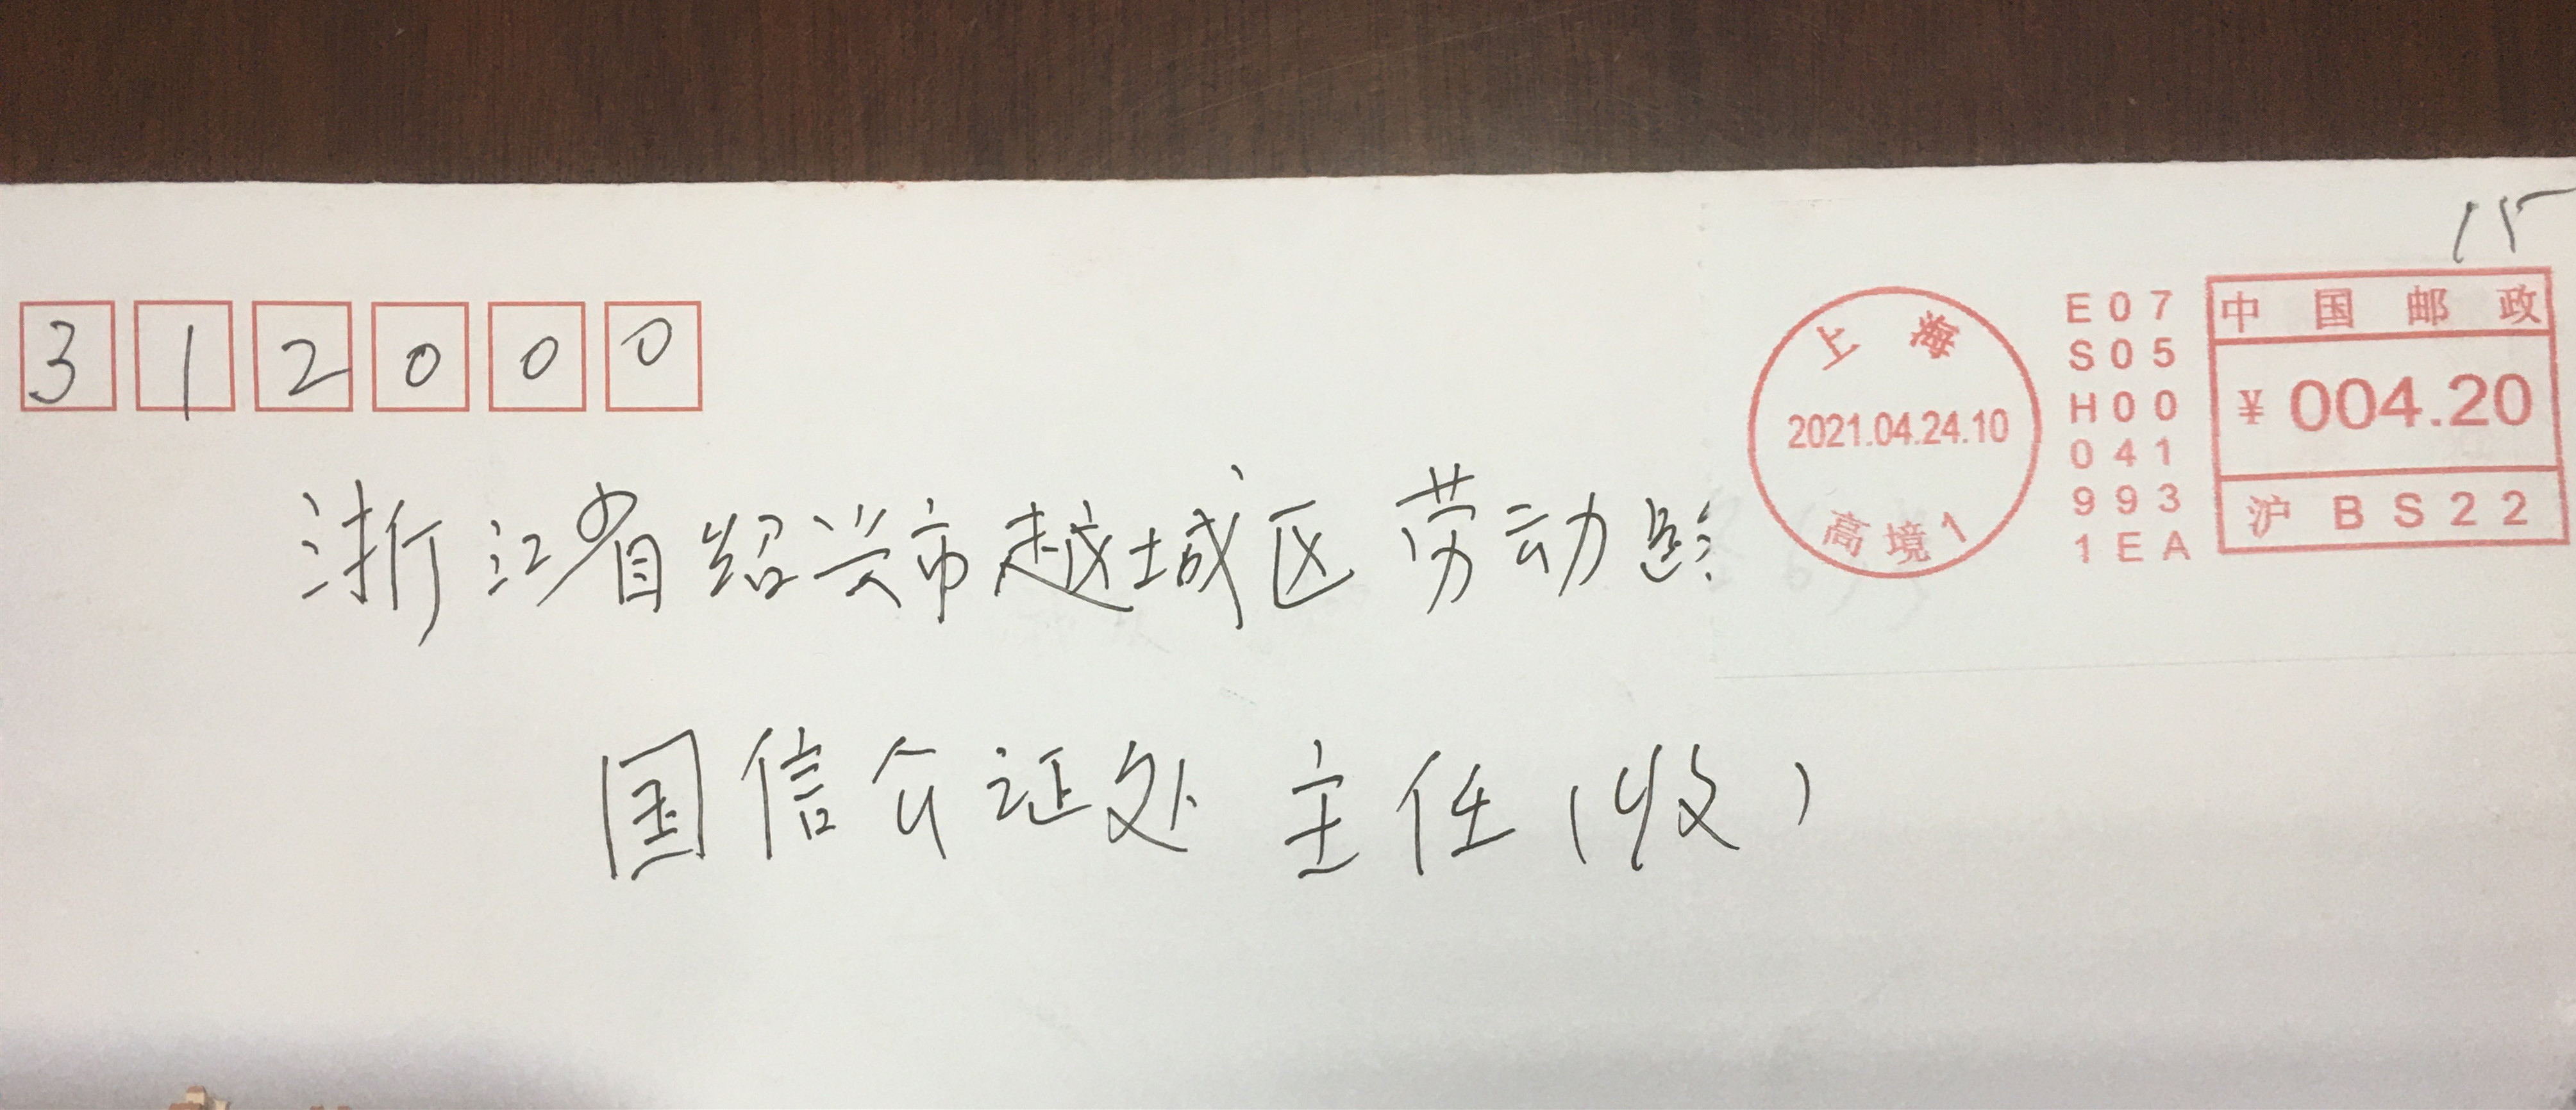 15
312000
上海
2021.04.24.10
高境1
E07
S05
H00
041
993
1EA
中国邮政
¥004.20
沪BS22
浙江省绍兴市越城区劳动路
国信公证处 主任(收)